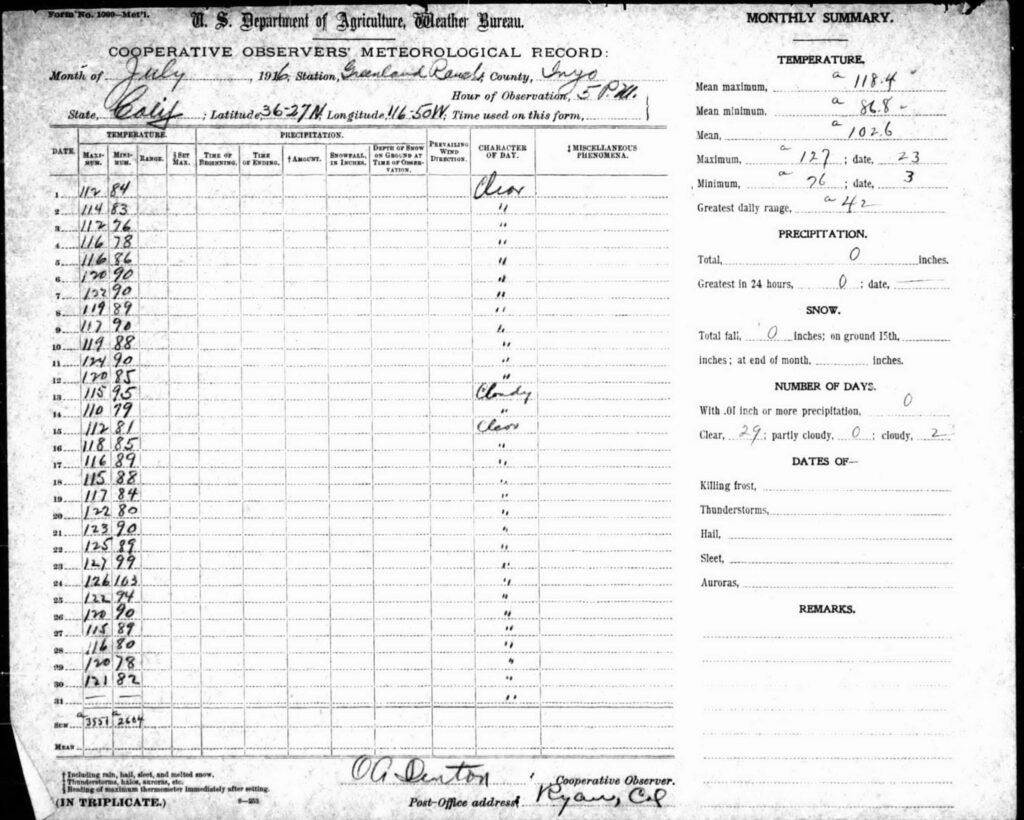 Form No. 1009—Met'l.
U. S. Department of Agriculture, Weather Bureau.
COOPERATIVE OBSERVERS' METEOROLOGICAL RECORD:
Month of July, 1916; Station, Greenland Ranch; County, Inyo
Hour of Observation, 5 P.M.
State, Calif; Latitude, 36-27N; Longitude, 116-50W; Time used on this form,
DATE. TEMPERATURE. PRECIPITATION. PREVAILING WIND DIRECTION. CHARACTER OF DAY. ‡ MISCELLANEOUS PHENOMENA.
MAXIMUM. MINIMUM. RANGE. § SET MAX. TIME OF BEGINNING. TIME OF ENDING. † AMOUNT. SNOWFALL, IN INCHES. DEPTH OF SNOW ON GROUND AT TIME OF OBSERVATION.
1 112 84 Clear
2 114 83 "
3 112 76 "
4 116 78 "
5 116 86 "
6 120 90 "
7 122 90 "
8 119 89 "
9 117 90 "
10 119 88 "
11 124 90 "
12 120 85 "
13 115 95 Cloudy
14 110 79 "
15 112 81 Clear
16 118 85 "
17 116 89 "
18 115 88 "
19 117 84 "
20 122 80 "
21 123 90 "
22 125 89 "
23 127 99 "
24 126 103 "
25 122 94 "
26 120 90 "
27 115 89 "
28 116 80 "
29 120 78 "
30 121 82 "
31 — — "
SUM a 3551 a 2604
MEAN
† Including rain, hail, sleet, and melted snow.
‡ Thunderstorms, halos, auroras, etc.
§ Reading of maximum thermometer immediately after setting.
(IN TRIPLICATE.) 8—253
OA Denton, Cooperative Observer.
Post-Office address, Ryan, Cal
MONTHLY SUMMARY.
TEMPERATURE.
Mean maximum, a 118.4
Mean minimum, a 86.8
Mean, a 102.6
Maximum, a 127; date, 23
Minimum, a 76; date, 3
Greatest daily range, a 42
PRECIPITATION.
Total, 0 inches.
Greatest in 24 hours, 0; date, —
SNOW.
Total fall, 0 inches; on ground 15th,
inches; at end of month, inches.
NUMBER OF DAYS.
With .01 inch or more precipitation, 0
Clear, 29; partly cloudy, 0; cloudy, 2
DATES OF—
Killing frost,
Thunderstorms,
Hail,
Sleet,
Auroras,
REMARKS.